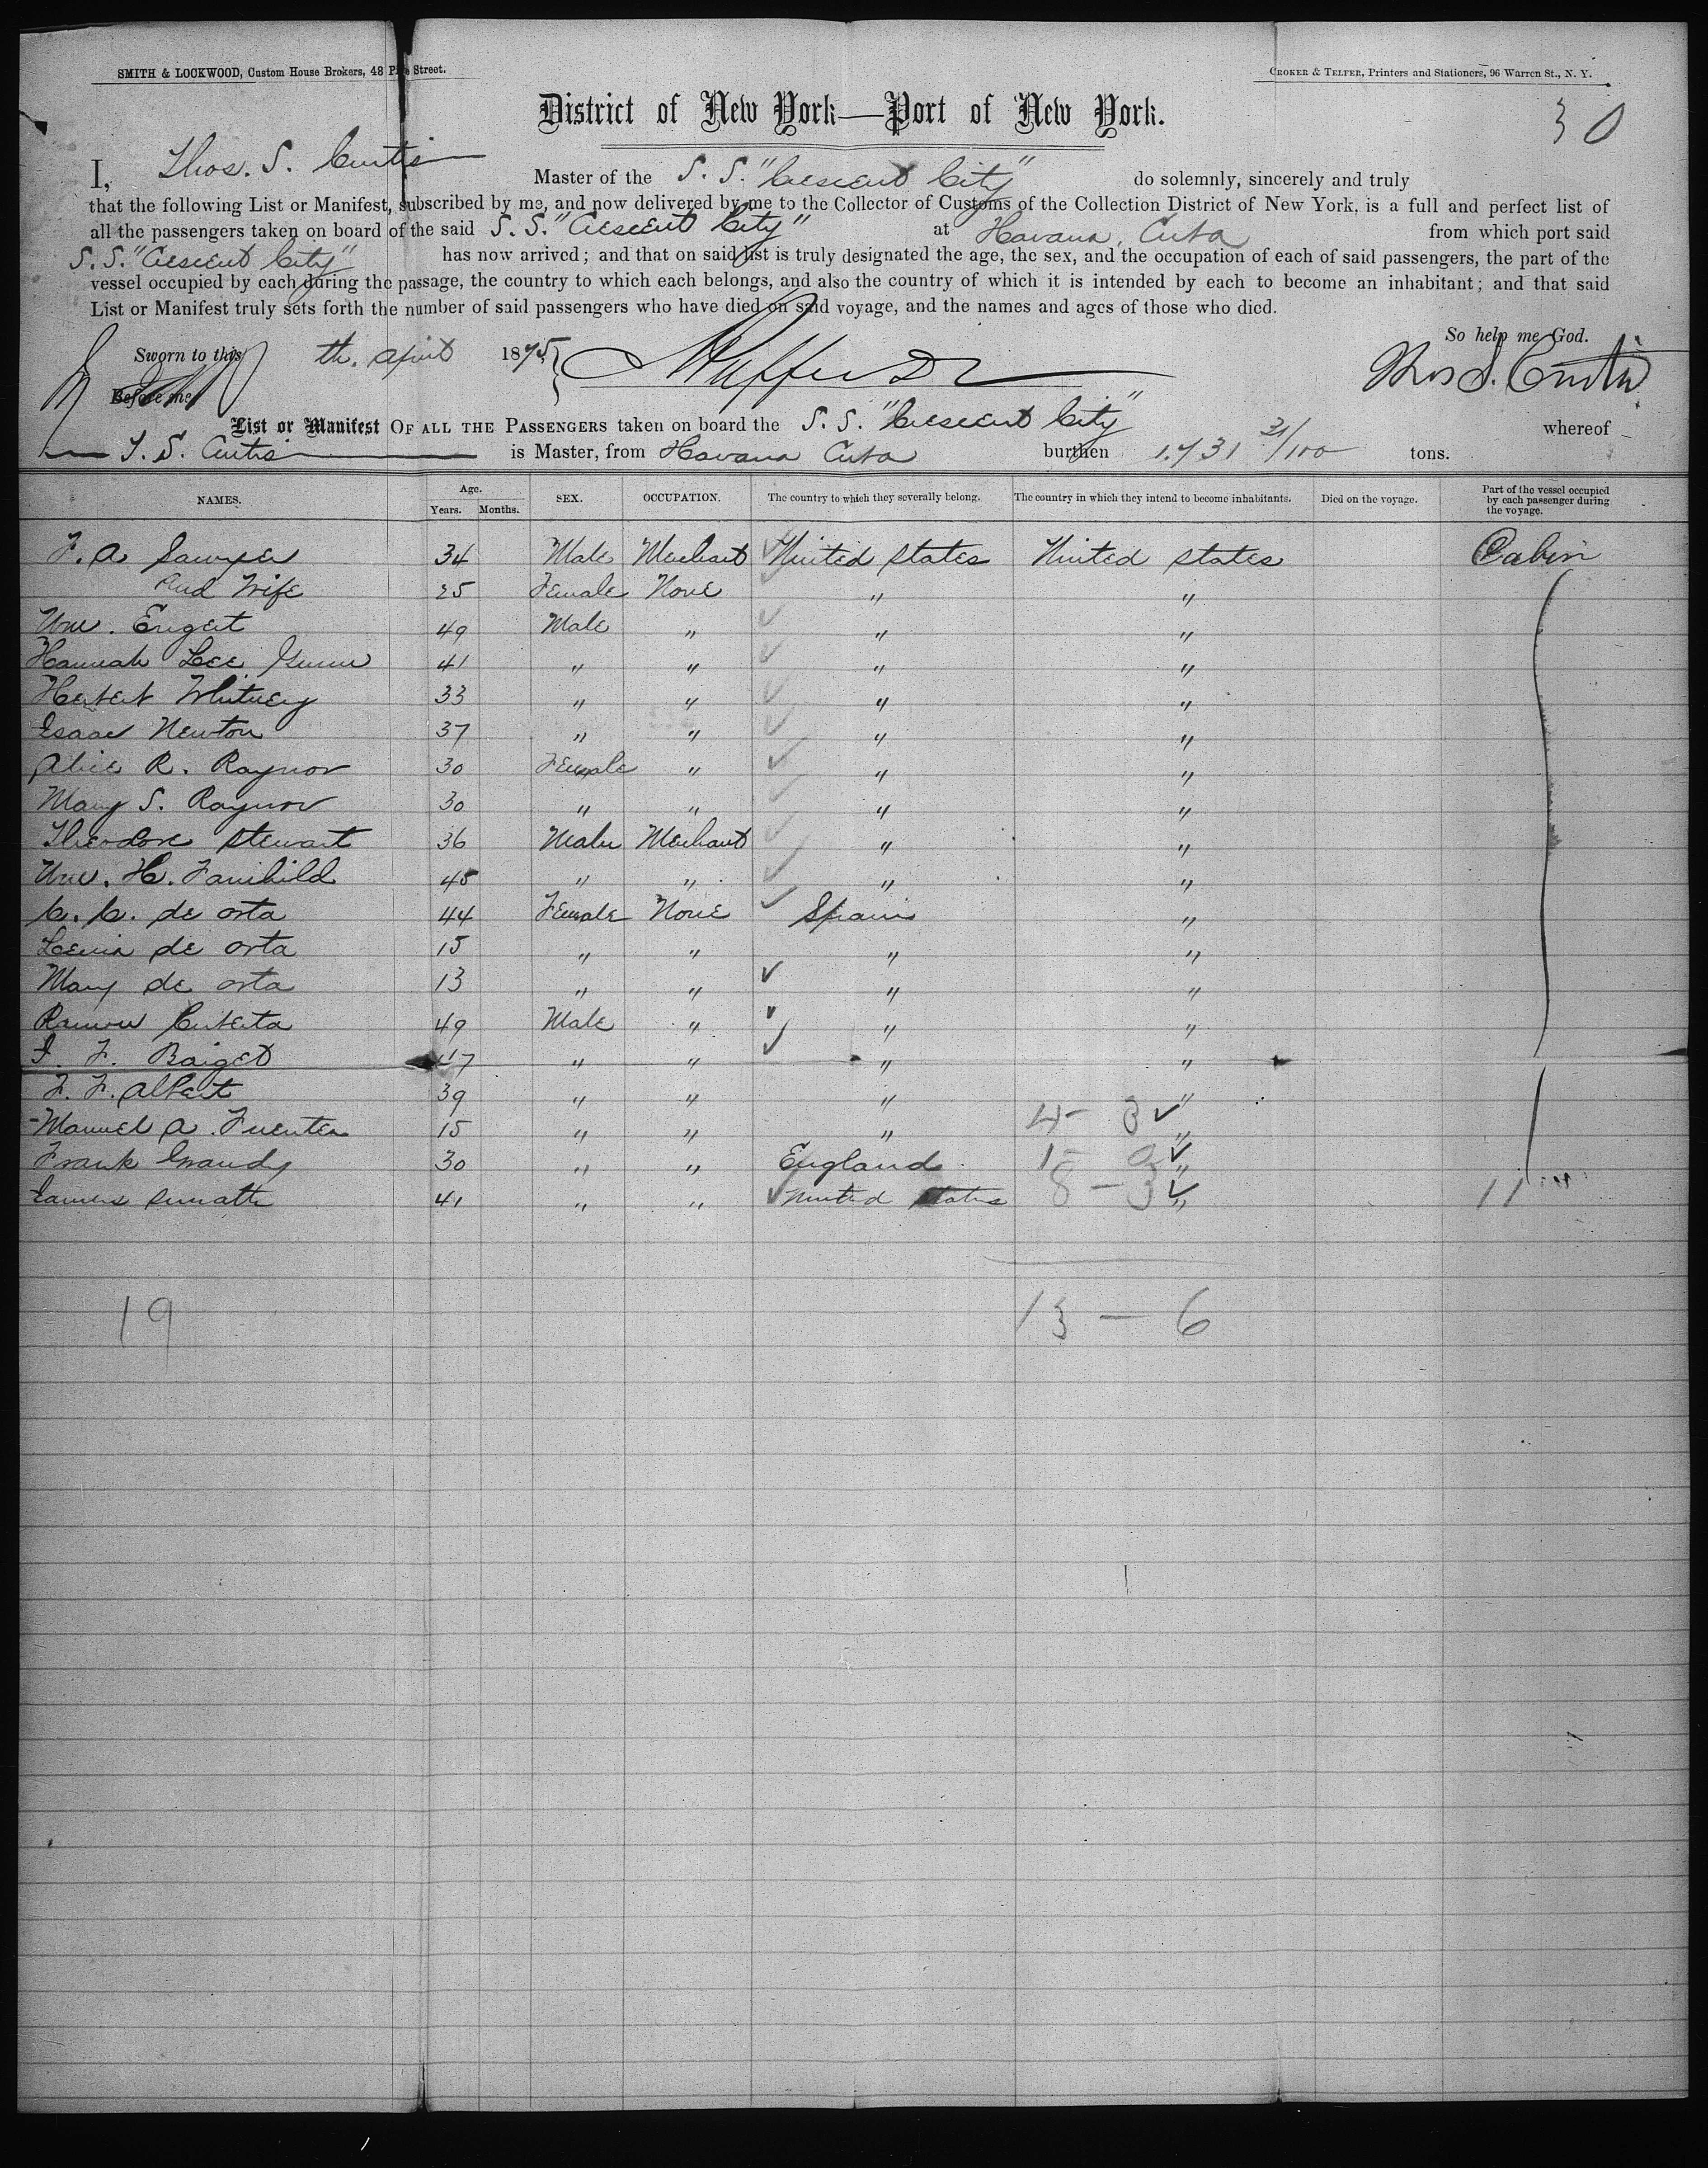 SMITH & LOCKWOOD, Custom House Brokers, 48 Street.
CROKER & TELFER, Printers and Stationers, 96 Warren St., N. Y.
District of New York—Port of New York.
30
I, Thos. S. Curtis Master of the S. S. "Crescent City" do solemnly, sincerely and truly
that the following List or Manifest, subscribed by me, and now delivered by me to the Collector of Customs of the Collection District of New York, is a full and perfect list of
all the passengers taken on board of the said S. S. "Crescent City" at Havana, Cuba from which port said
S. S. "Crescent City" has now arrived; and that on said list is truly designated the age, the sex, and the occupation of each of said passengers, the part of the
vessel occupied by each during the passage, the country to which each belongs, and also the country of which it is intended by each to become an inhabitant; and that said
List or Manifest truly sets forth the number of said passengers who have died on said voyage, and the names and ages of those who died.
So help me God.
Sworn to this th. April 1875
Thos S. Curtis
Before me
List or Manifest OF ALL THE PASSENGERS taken on board the S. S. "Crescent City" whereof
T. S. Curtis is Master, from Havana Cuba burthen 1.731 31/100 tons.
NAMES. Age. Years. Months. SEX. OCCUPATION. The country to which they severally belong. The country in which they intend to become inhabitants. Died on the voyage. Part of the vessel occupied by each passenger during the voyage.
F. A Sawyer 34 Male Merchant United States United States Cabin
and Wife 25 Female None " "
Wm. 49 Male " " "
Hannah Lee 41 " " " "
Herbert Whitney 33 " " " "
Isaac Newton 37 " " " "
Alice R. Raynor 30 Female " " "
Mary S. Raynor 30 " " " "
Theodore Stewart 36 Male Merchant " "
Wm. H. Fairchild 45 " " " "
C. C. de Orta 44 Female None Spain "
de Orta 15 " " " "
Mary de Orta 13 " " " "
Ramon 49 Male " " "
F. Baiget 17 " " " "
F. F. Albert 39 " " " "
Manuel A. Fuentes 15 " " " "
Frank Grandy 30 " " England "
41 " " United States "
4 - 3
1 - 0
8 - 3
11
19
13 - 6